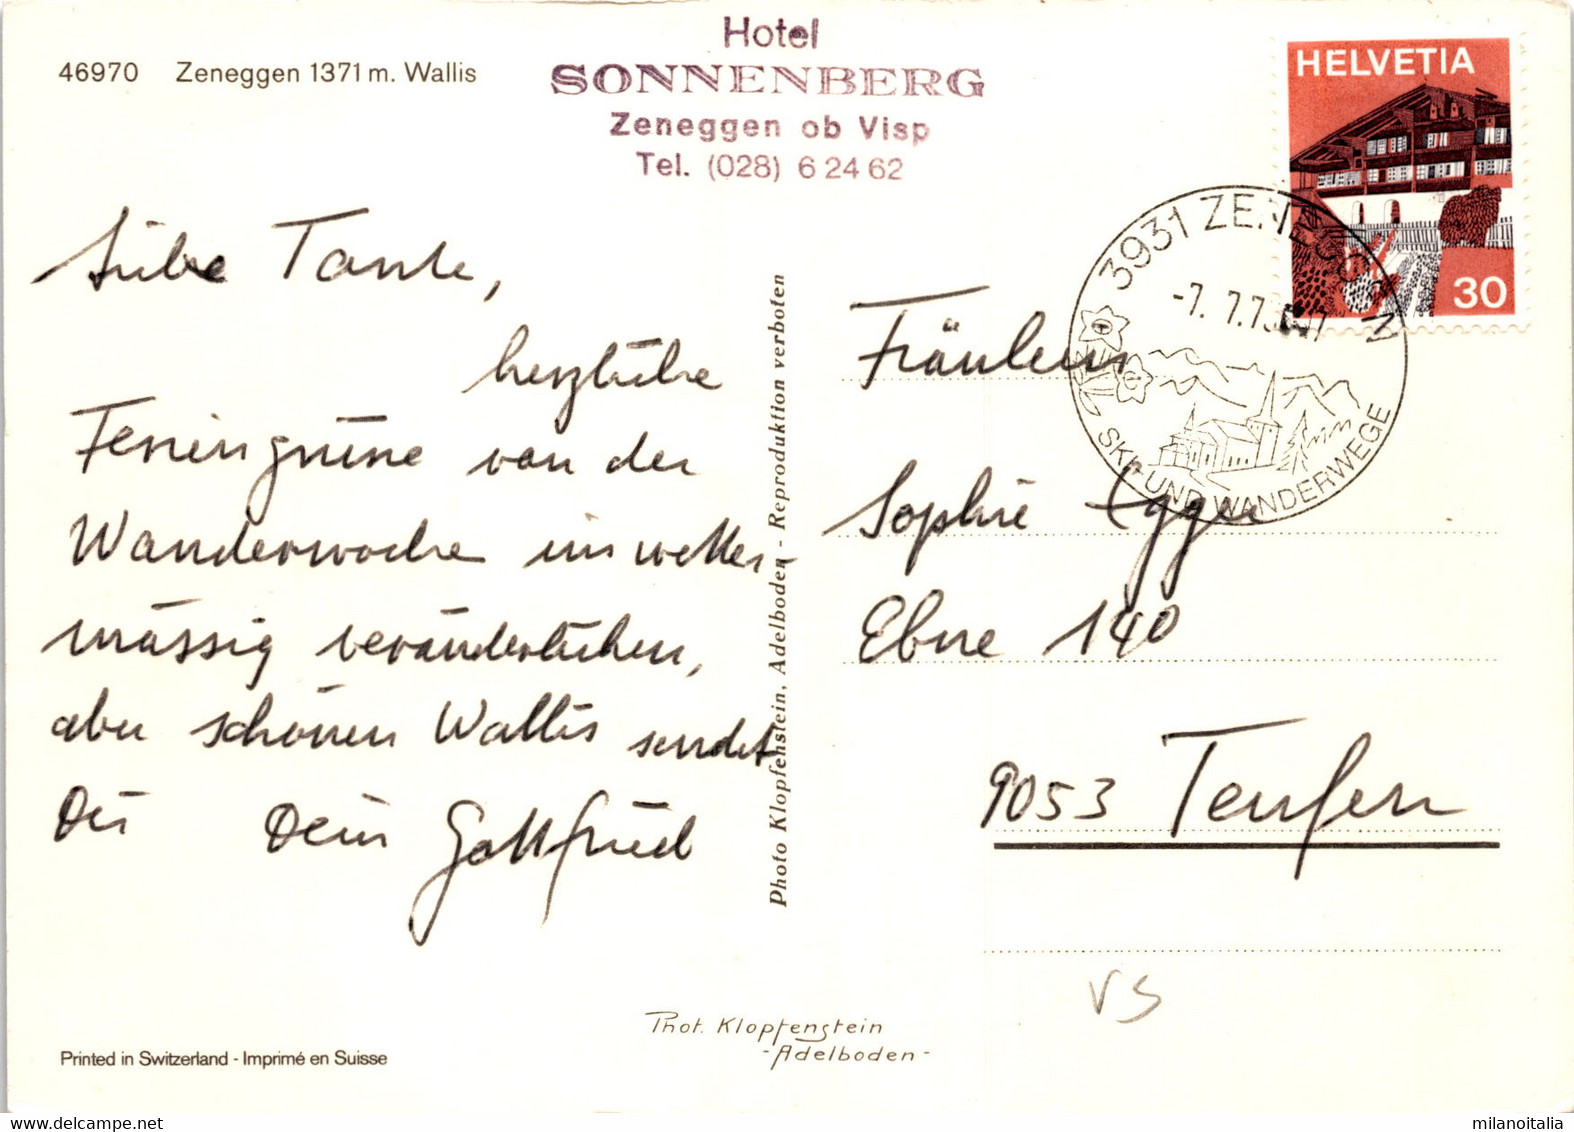 46970 Zeneggen 1371 m. Wallis
Hotel
SONNENBERG
Zeneggen ob Visp
Tel. (028) 6 24 62
HELVETIA
30
3931 ZENEGGEN
-7. 7.7
SKI- UND WANDERWEGE
Liebe Tante,
herzliche
Feriengrüsse von der
Wanderwoche im wetter-
mässig veränderlichen,
aber schönen Wallis sendet
Dir Dein Gottfried
Photo Klopfenstein, Adelboden - Reproduktion verboten
Fräulein
Sophie Egger
Ebne 140
9053 Teufen
VS
Phot. Klopfenstein
- Adelboden -
Printed in Switzerland - Imprimé en Suisse
milanoitalia